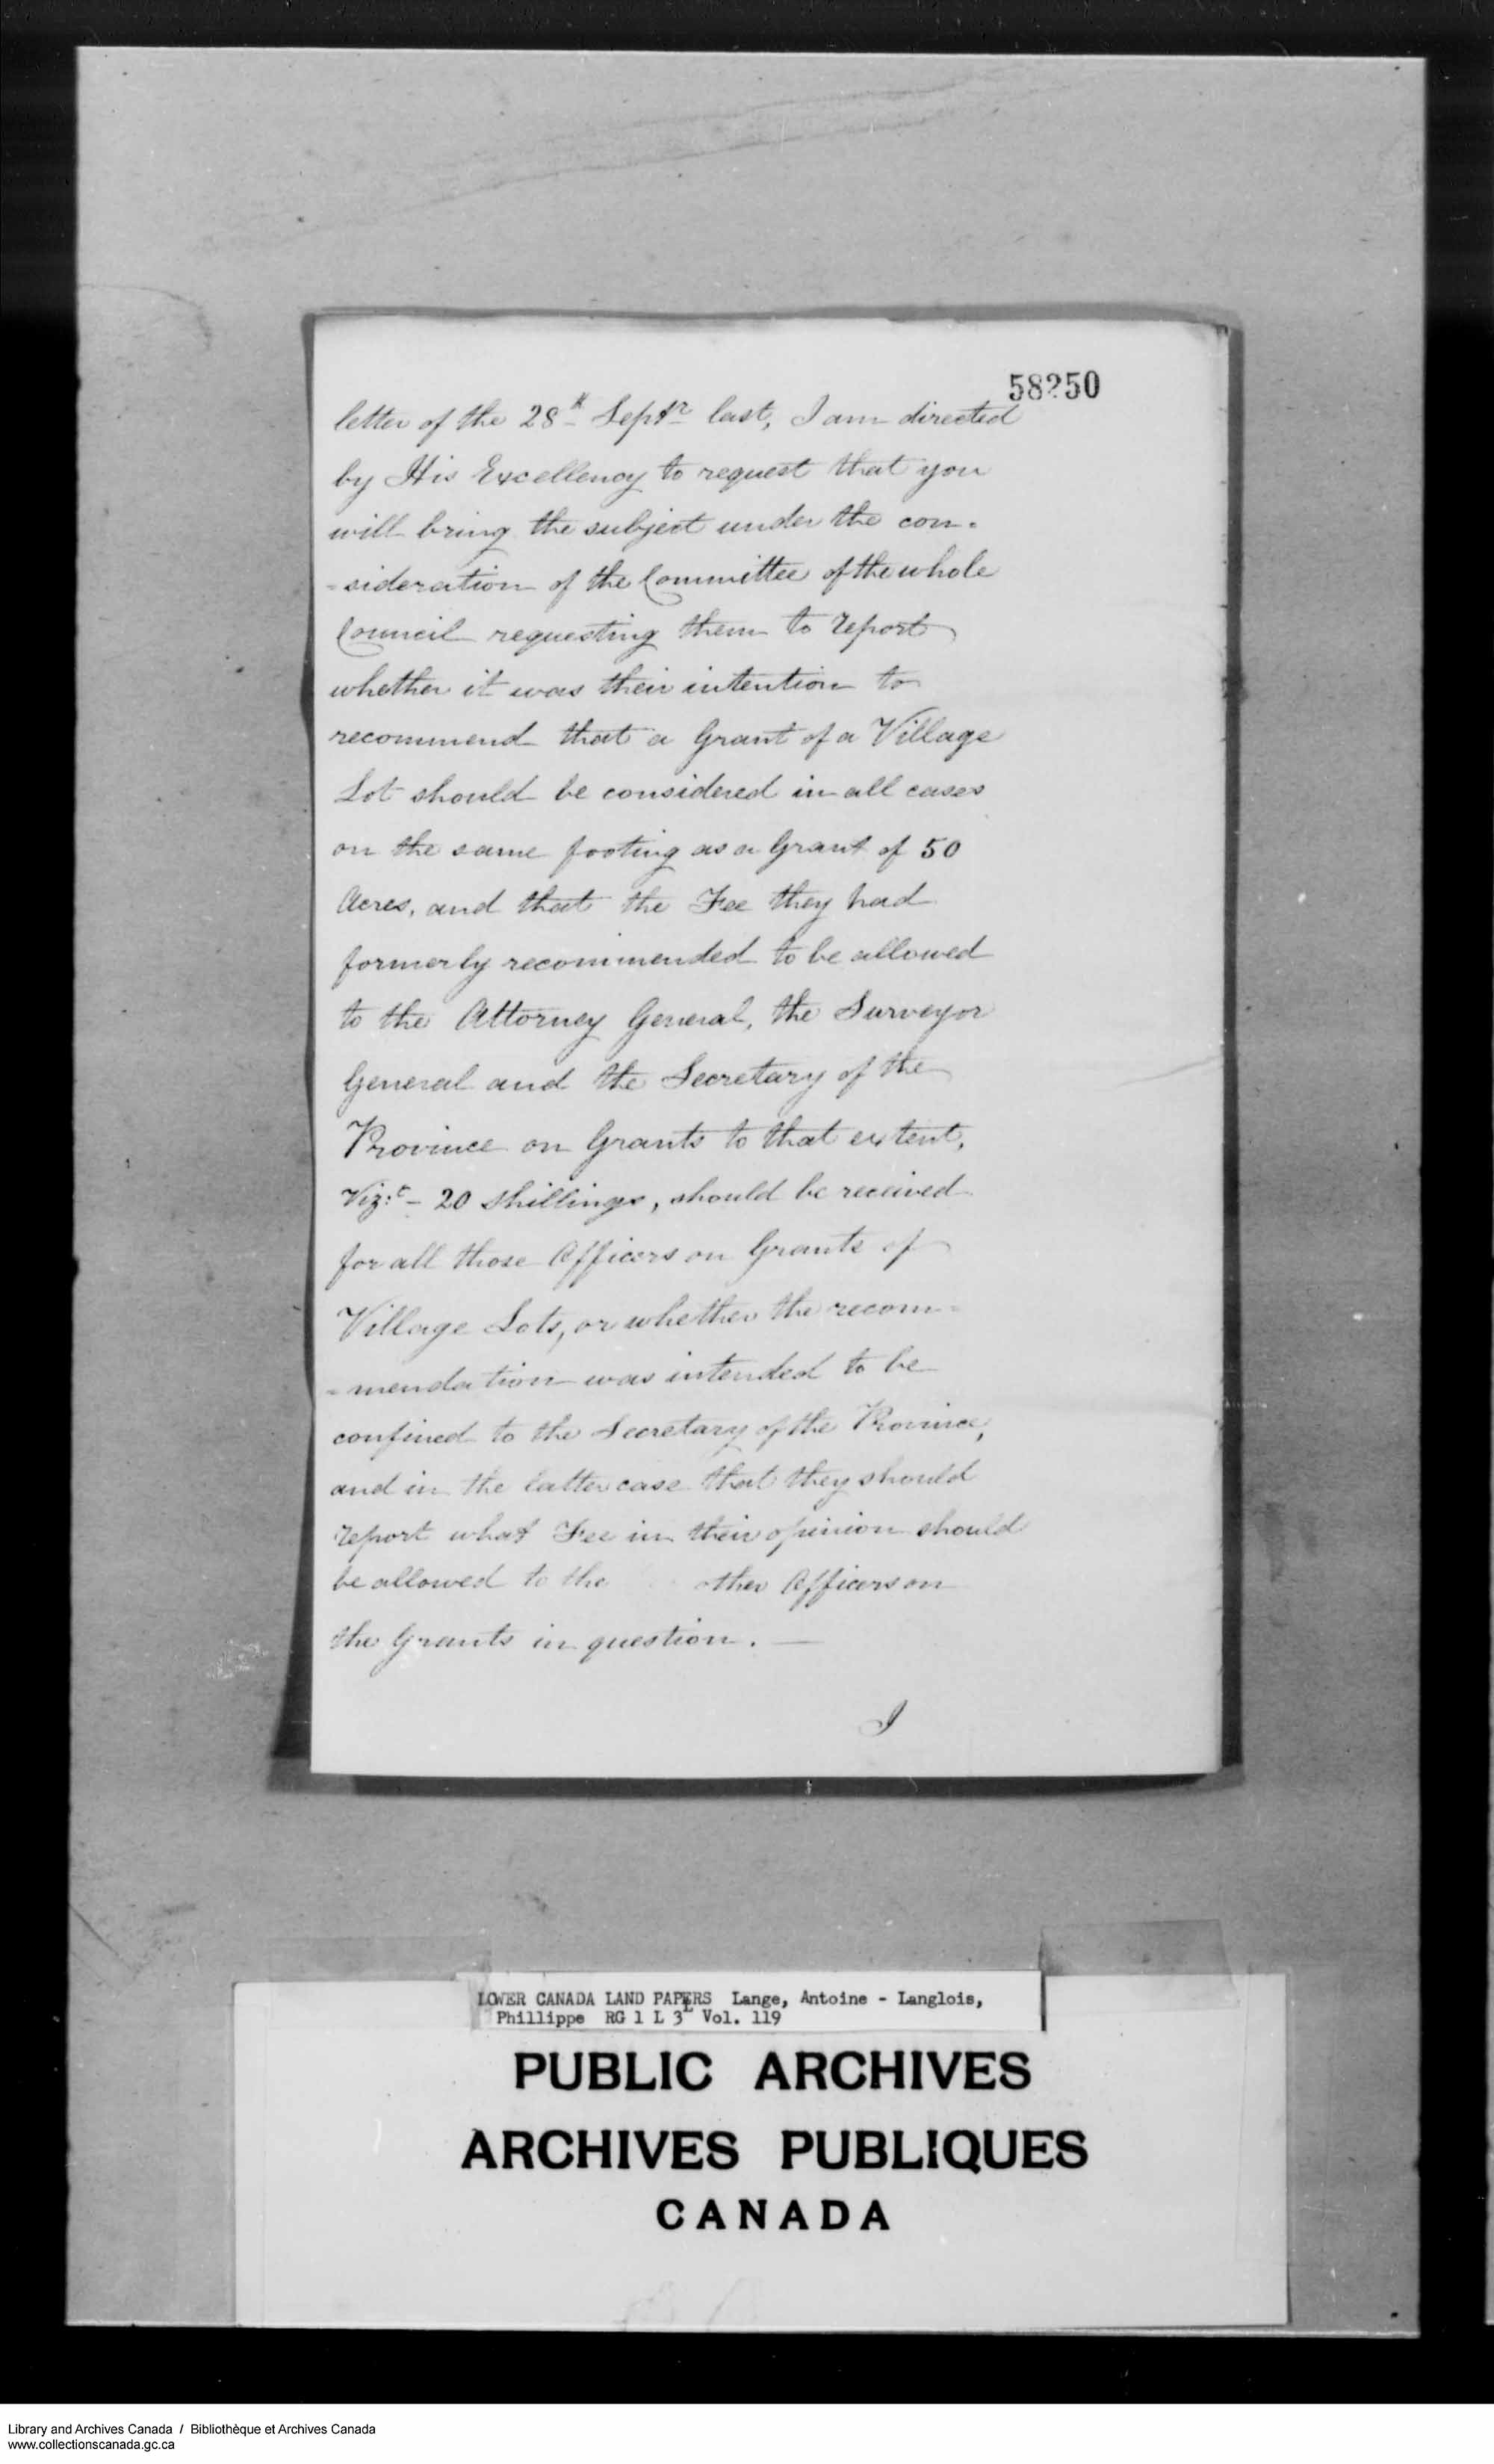 58250
letter of the 28th Septr last, I am directed
by His Excellency to request that you
will bring the subject under the con-
-sideration of the Committee of the whole
Council requesting them to report
whether it was their intention to
recommend that a Grant of a Village
Lot should be considered in all cases
on the same footing as a Grant of 50
Acres, and that the Fee they had
formerly recommended to be allowed
to the Attorney General, the Surveyor
General and the Secretary of the
Province on Grants to that extent,
Viz:t - 20 Shillings, should be received
for all those Officers on Grants of
Village Lots, or whether the recom-
-mendation was intended to be
confined to the Secretary of the Province,
and in the latter case that they should
report what Fee in their opinion should
be allowed to the other Officers on
the Grants in question. —
I
LOWER CANADA LAND PAPERS Lange, Antoine - Langlois,
Phillippe RG 1 L 3L Vol. 119
PUBLIC ARCHIVES
ARCHIVES PUBLIQUES
CANADA
Library and Archives Canada / Bibliothèque et Archives Canada
www.collectionscanada.gc.ca